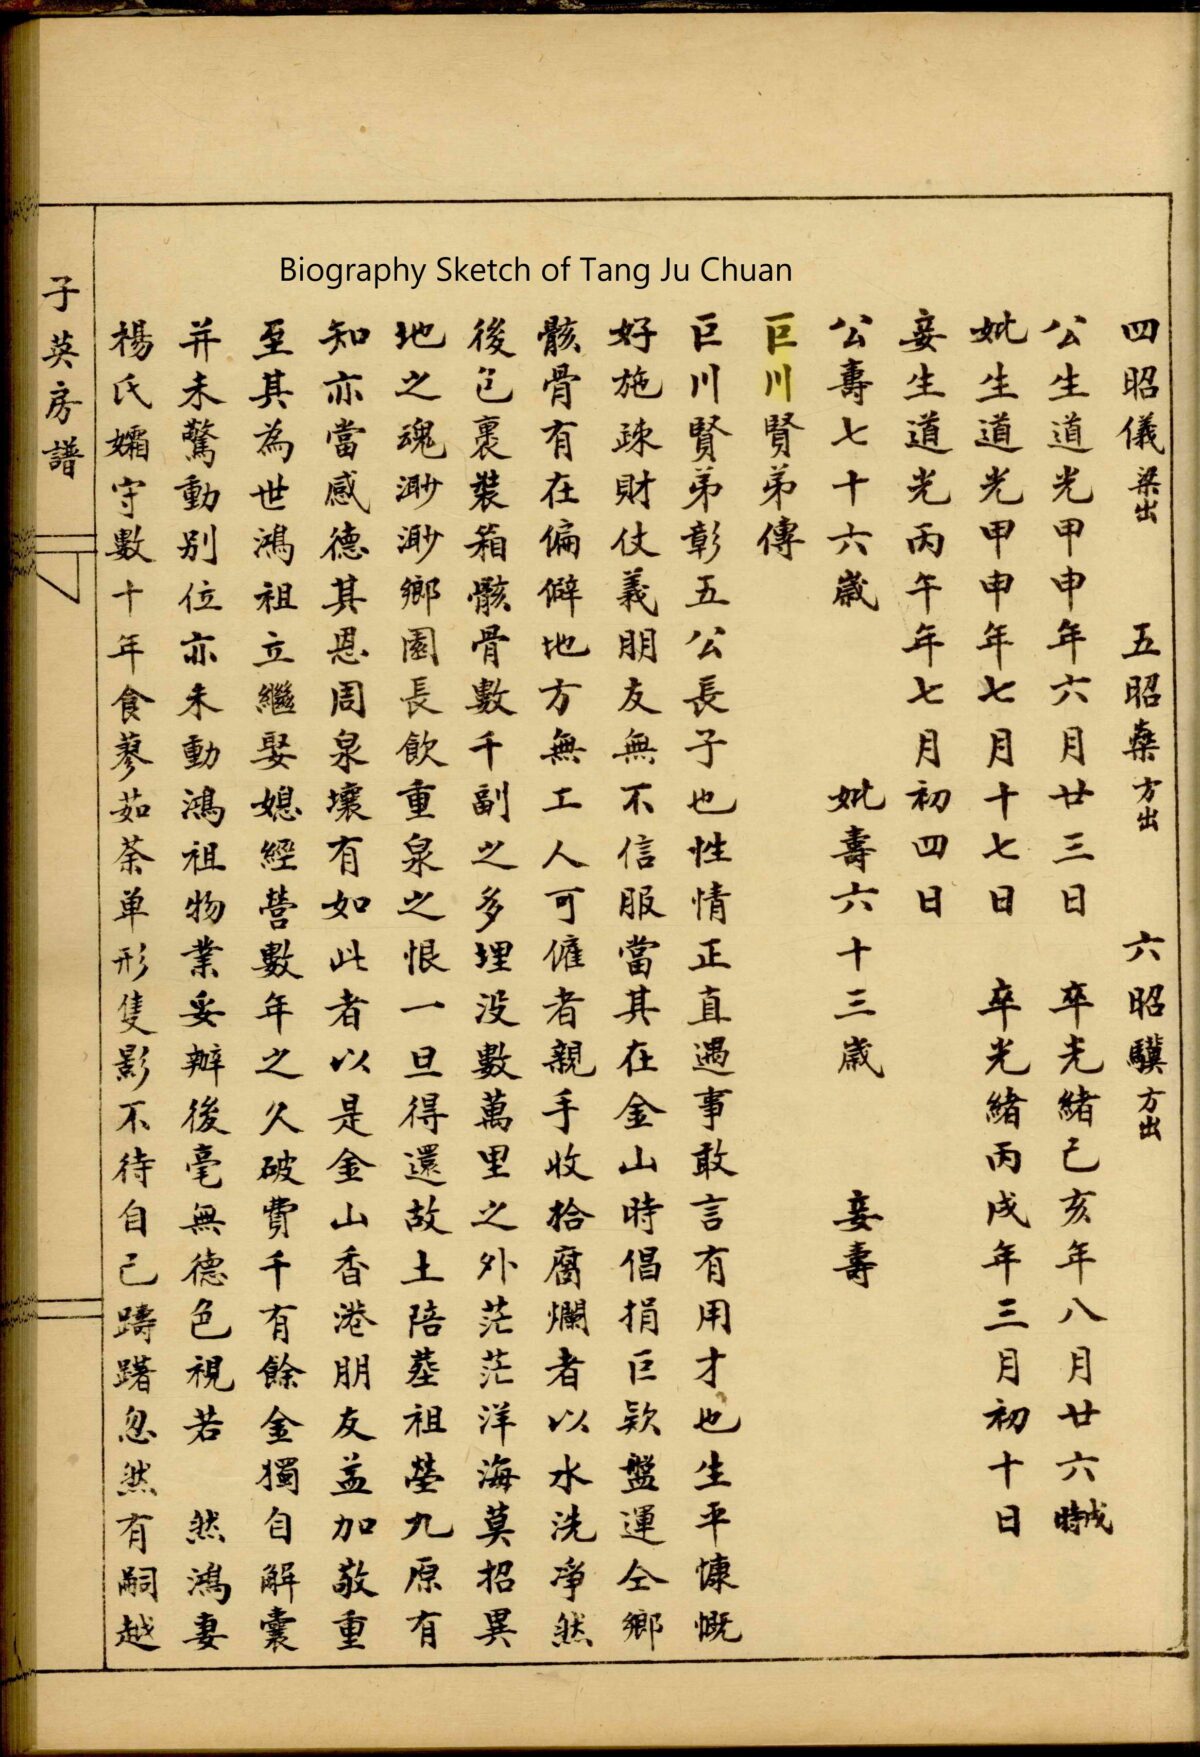 Biography Sketch of Tang Ju Chuan
四昭儀梁出 五昭桑方出 六昭驥方出
公生道光甲申年六月廿三日 卒光緒己亥年八月廿六戌時
妣生道光甲申年七月十七日 卒光緒丙戌年三月初十日
妾生道光丙午年七月初四日
公壽七十六歲 妣壽六十三歲 妾壽
巨川賢弟傳
巨川賢弟彰五公長子也性情正直遇事敢言有用才也生平慷慨
好施疎財仗義朋友無不信服當其在金山時倡捐巨欵盤運仝鄉
骸骨有在偏僻地方無工人可僱者親手收拾腐爛者以水洗凈然
後包裹裝箱骸骨數千副之多埋没數萬里之外茫茫洋海莫招異
地之魂渺渺鄉園長飲重泉之恨一旦得還故土陪塟祖塋九原有
知亦當感德其恩周泉壤有如此者以是金山香港朋友益加敬重
至其為世鴻祖立繼娶媳經營數年之久破費千有餘金獨自解囊
并未驚動别位亦未動鴻祖物業妥辦後毫無德色視若 然鴻妻
楊氏孀守數十年食蓼茹荼单形隻影不待自己躊躇忽然有嗣越
子英房譜